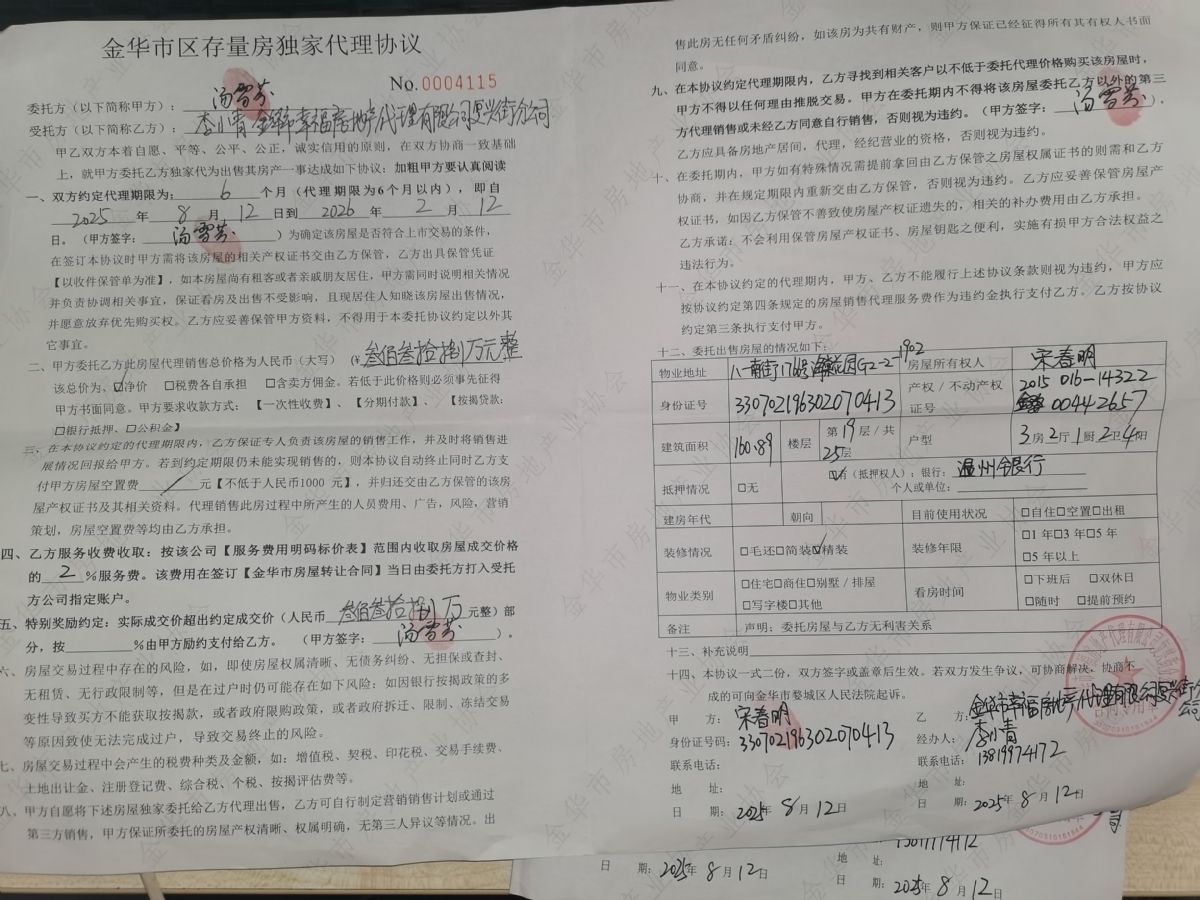 金华市区存量房独家代理协议
No.0004115
委托方（以下简称甲方）：汤雪芬
受托方（以下简称乙方）：李小青 金华市幸福房地产代理有限公司复兴街分公司
甲乙双方本着自愿、平等、公平、公正，诚实信用的原则，在双方协商一致基础
上，就甲方委托乙方独家代为出售其房产一事达成如下协议：加粗甲方要认真阅读
一、双方约定代理期限为：6个月（代理期限为6个月以内），即自
2025年8月12日到2026年2月12
日。（甲方签字：汤雪芬）为确定该房屋是否符合上市交易的条件，
在签订本协议时甲方需将该房屋的相关产权证书交由乙方保管，乙方出具保管凭证
【以收件保管单为准】，如本房屋尚有租客或者亲戚朋友居住，甲方需同时说明相关情况
并负责协调相关事宜，保证看房及出售不受影响，且现居住人知晓该房屋出售情况，
并愿意放弃优先购买权。乙方应妥善保管甲方资料，不得用于本委托协议约定以外其
它事宜。
二、甲方委托乙方此房屋代理销售总价格为人民币（大写）（¥叁佰叁拾捌万元整
该总价为、☑净价 □税费各自承担 □含卖方佣金。若低于此价格则必须事先征得
甲方书面同意。甲方要求收款方式：【一次性收费】、【分期付款】、【按揭贷款：
□银行抵押、□公积金】
三、在本协议约定的代理期限内，乙方保证专人负责该房屋的销售工作，并及时将销售进
展情况回报给甲方。若到约定期限仍未能实现销售的，则本协议自动终止同时乙方支
付甲方房屋空置费／元【不低于人民币1000 元】，并归还交由乙方保管的该房
屋产权证书及其相关资料。代理销售此房过程中所产生的人员费用、广告，风险，营销
策划，房屋空置费等均由乙方承担。
四、乙方服务收费收取：按该公司【服务费用明码标价表】范围内收取房屋成交价格
的2%服务费。该费用在签订【金华市房屋转让合同】当日由委托方打入受托
方公司指定账户。
五、特别奖励约定：实际成交价超出约定成交价（人民币叁佰叁拾捌万元整）部
分，按%由甲方励约支付给乙方。（甲方签字：汤雪芬）。
六、房屋交易过程中存在的风险，如，即使房屋权属清晰、无债务纠纷、无担保或查封、
无租赁、无行政限制等，但是在过户时仍可能存在如下风险：如因银行按揭政策的多
变性导致买方不能获取按揭款，或者政府限购政策，或者政府拆迁、限制、冻结交易
等原因致使无法完成过户，导致交易终止的风险。
七、房屋交易过程中会产生的税费种类及金额，如：增值税、契税、印花税、交易手续费、
土地出让金、注册登记费、综合税、个税、按揭评估费等。
八、甲方自愿将下述房屋独家委托给乙方代理出售，乙方可自行制定营销销售计划或通过
第三方销售，甲方保证所委托的房屋产权清晰、权属明确，无第三人异议等情况。出
售此房无任何矛盾纠纷，如该房为共有财产，则甲方保证已经征得所有其有权人书面
同意。
九、在本协议约定代理期限内，乙方寻找到相关客户以不低于委托代理价格购买该房屋时，
甲方不得以任何理由推脱交易。甲方在委托期内不得将该房屋委托乙方以外的第三
方代理销售或未经乙方同意自行销售，否则视为违约。（甲方签字：汤雪芬）。
乙方应具备房地产居间，代理，经纪营业的资格，否则视为违约。
十、在委托期内，甲方如有特殊情况需提前拿回由乙方保管之房屋权属证书的则需和乙方
协商，并在规定期限内重新交由乙方保管，否则视为违约。乙方应妥善保管房屋产
权证书，如因乙方保管不善致使房屋产权证遗失的，相关的补办费用由乙方承担。
乙方承诺：不会利用保管房屋产权证书、房屋钥匙之便利，实施有损甲方合法权益之
违法行为。
十一、在本协议约定的代理期内，甲方、乙方不能履行上述协议条款则视为违约，甲方应
按协议约定第四条规定的房屋销售代理服务费作为违约金执行支付乙方。乙方按协议
约定第三条执行支付甲方。
十二、委托出售房屋的情况如下：
物业地址 八一南街1766号 花园G2-2-1902 房屋所有权人 宋春明
身份证号 330702196302070413 产权/不动产权证号 2015 016-14322 00442657
建筑面积 160.89 楼层 第19层/共25层 户型 3房2厅1厨2卫4阳
抵押情况 □无 ☑有（抵押权人）：银行：温州银行
个人或单位：
建房年代 朝向 目前使用状况 □自住□空置□出租
装修情况 □毛还□简装☑精装 装修年限 □1年□3年□5年
□5年以上
物业类别 □住宅□商住□别墅/排屋 看房时间 □下班后 □双休日
□写字楼□其他 □随时 □提前预约
备注 声明：委托房屋与乙方无利害关系
十三、补充说明
十四、本协议一式二份，双方签字或盖章后生效。若双方发生争议，可协商解决，协商不
成的可向金华市婺城区人民法院起诉。
甲 方：宋春明 乙 方：金华市幸福房地产代理有限公司复兴街分公司
身份证号码：330702196302070413 经办人：李小青
联系电话： 联系电话：13819974172
地 址： 地 址：
日 期：2025年8月12日 日 期：2025年8月12日
地 址：
日 期：2025年8月12日 日 期：2025年8月12日